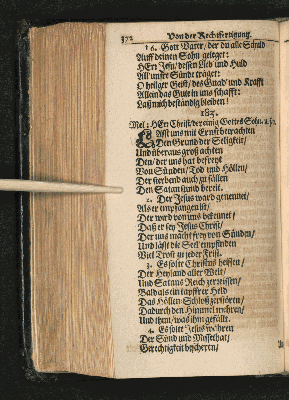 372 Von der Rechtfertigung.
16. Gott Vater/ der du alle Schuld
Auff deinen Sohn geleget:
HErr Jesu/ dessen Lieb und Huld
All unsre Sünde träget:
O heilger Geist/ des Gnad und Krafft
Allein das Gute in uns schafft:
Laß mich beständig bleiben!
183.
Mel: HErr Christ/ der einig Gottes Sohn.
LAst uns mit Ernst betrachten
Den Grund der Seligkeit/
Und überaus groß achten
Den/ der uns hat befreyt
Von Sünden/ Tod und Höllen/
Der sterbend auch zu fällen
Den Satan stund bereit.
2. Der Jesus ward genennet/
Als er empfangen ist/
Der wird von uns bekennet/
Daß er sey Jesus Christ/
Der uns macht frey von Sünden/
Und läst die Seel empfinden
Viel Trost zu jeder Frist.
3. Es solte Christus heissen/
Der Heyland aller Welt/
Und Satans Reich zerreissen/
Bald als ein tapffrer Held
Das Höllen-Schloß zerstören/
Dadurch den Himmel mehren/
Und thun/ was ihm gefällt.
4. Es solte Jesus wehren
Der Sünd und Missethat/
Gerechtigkeit bescheren/